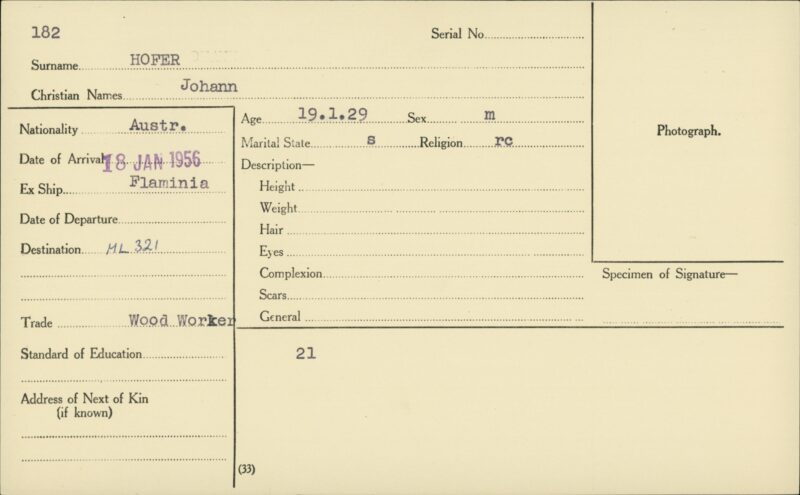 182
Serial No.
Surname HOFER
Christian Names Johann
Nationality Austr.
Date of Arrival 18 JAN 1956
Ex Ship Flaminia
Date of Departure
Destination ML 321
Trade Wood Worker
Standard of Education
Address of Next of Kin
(if known)
Age 19.1.29 Sex m
Marital State s Religion rc
Description—
Height
Weight
Hair
Eyes
Complexion
Scars
General
21
(33)
Photograph.
Specimen of Signature—